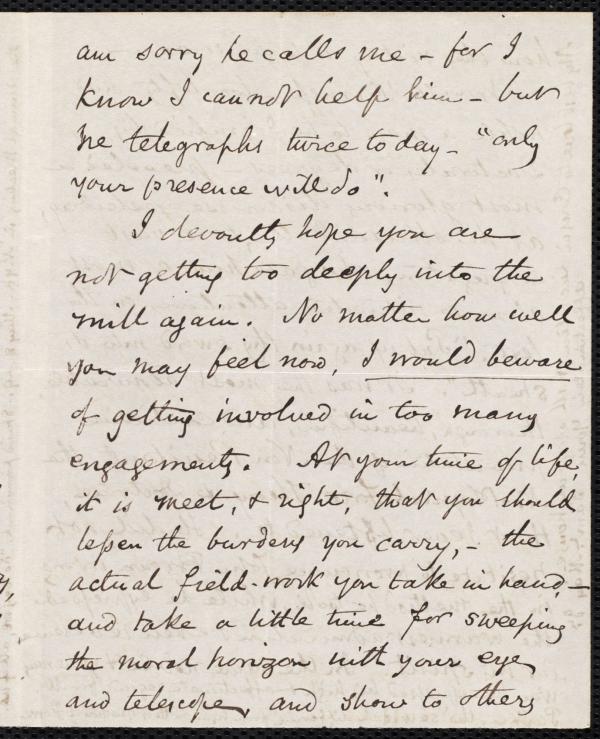 am sorry he calls me - for I
know I cannot help him - but
he telegraphs twice today - "only
your presence will do".
I devoutly hope you are
not getting too deeply into the
mill again. No matter how well
you may feel now, I would beware
of getting involved in too many
engagements. At your time of life,
it is meet, & right, that you should
lessen the burdens you carry, - the
actual field-work you take in hand, -
and take a little time for sweeping
the moral horizon with your eye
and telescope, and show to others